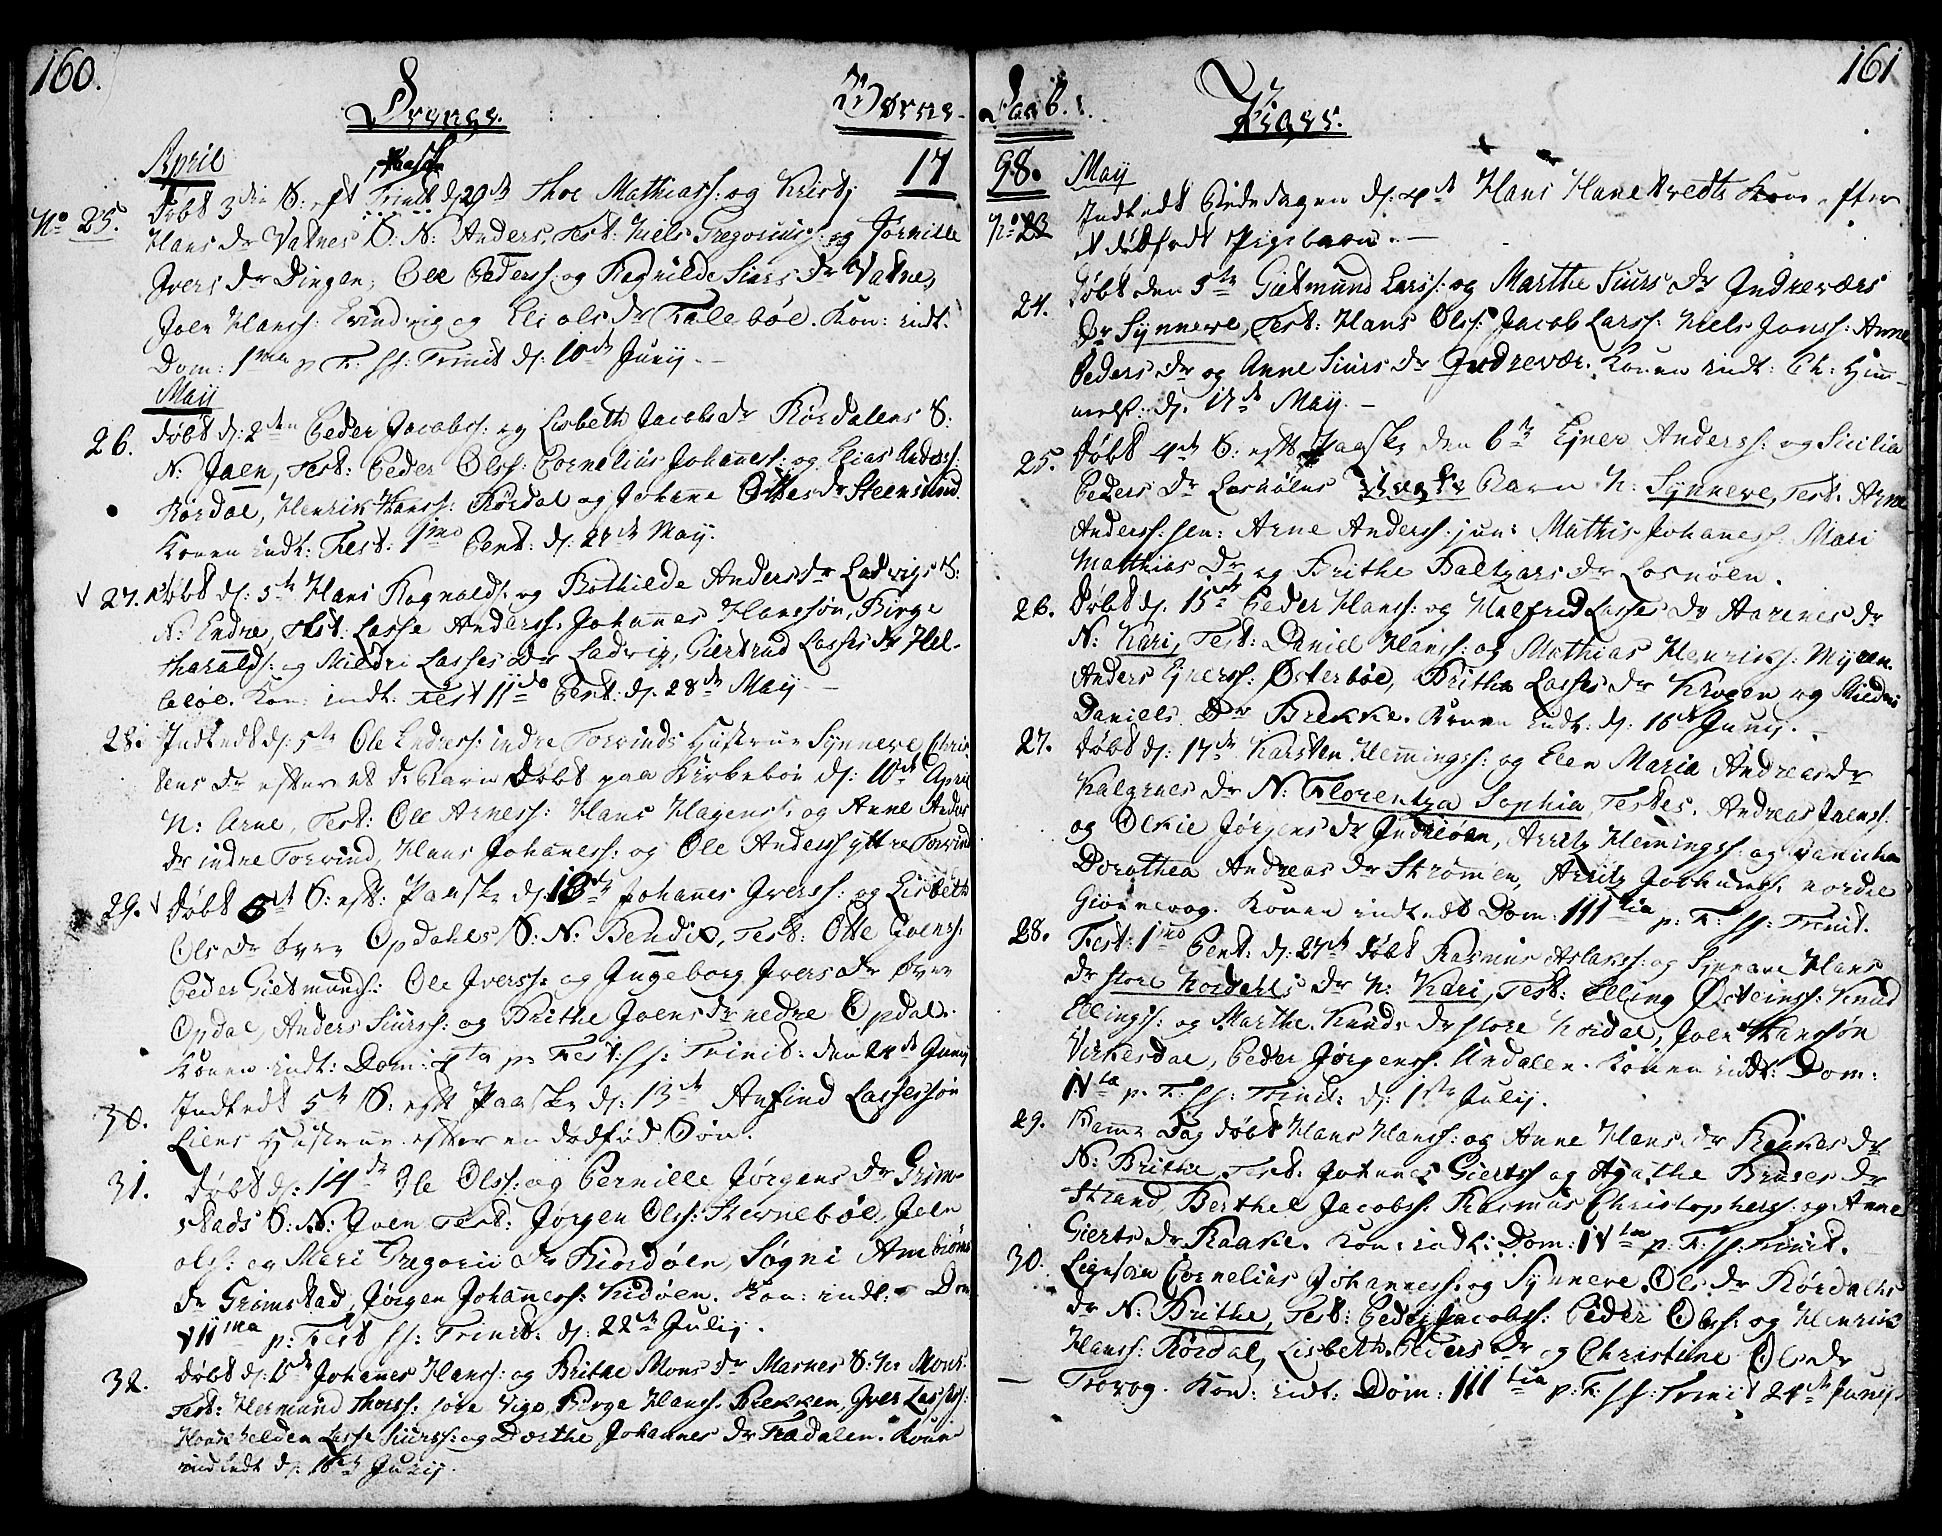 160.
Drenge.
Børne
April
17
No 25.
Døbt 3die S: eft Paaske d: 29de Thoe Mathiass: og Kristj
Hans Dr Vatnes S. N: Anders, Test: Niels Gregoriuss: og Pernille
Ivers Dr Dingen, Ole Peders: og Ragnilde Siurs Dr Vatnes,
Joen Hanss: Evindvig og Eli Ols Dr Talebøe. Kon: indt:
Dom: 1ma p F. SS: Trinit d: 10de Junij
May
26.
Døbt d: 2den Peder Jacobss: og Lisbeth Jacobs Dr Kørdalens S:
N: Joen, Test: Peder Olss: Cornelius Johaness: og Elias Anderss:
Kørdal, Henrik Hanss: Kørdal og Johanne Ottes Dr Steensund.
Konen indt: Fest: 1mo Pent: d: 27de May.
27.
Døbt d: 5te Hans Ragnalds: og Bothilde Anders Dr Ladvigs S:
N: Endre, Test: Lasse Anderss: Johannes Hanssøn, Birge
Haralds: og Mildri Lasses Dr Ladvig, Giertrud Lasses Dr Hel-
leløe. Kon: indt: Fest 11do Pent: d: 28de May
28.
Indledt d: 5te Ole Endress: indre Torvinds Hustrue Synneve Chris
tens Dr efter et d: Barn Døbt paa Kirkebøe d: 10de April
N: Arne, Test: Ole Arness: Hans Hagens: og Anne Anders
Dr indre Torvind, Hans Johaness: og Ole Anderss yttre Torvind
29.
Døbt 5te S: eft: Paaske d: 13de Johannes Iverss: og Lisbeth
Ols Dr øvre Opdahls S: N: Bendix, Test: Otte Joenss:
Peder Gietmunds: Ole Iverss: og Ingeborg Ivers Dr øvre
Opdal, Anders Siurss: og Brithe Joens Dr nedre Opdal.
Konen indt: Dom: 4ta p: Fest: SS: Trinit: den 24de Junij
30.
Indledt 5te S: eft Paaske d: 13de Anfind Lassessøn
Liens Hustrue efter en dødfød Søn.
31.
Døbt d: 14de Ole Olss: og Pernille Jørgens Dr Grim-
stads S: N: Joen Test: Jørgen Olss: Stevnebøe, Joen
Ols: og Mari Gregorii Dr Kiordøen, Søgni Ambrøns
Dr Grimstad, Jørgen Johaness: Hidøen. Kon: indt: Dom
VIIma p: Fest SS: Trinit: d: 22de Julij.
32.
Døbt d: Johanes Hanss: og Brithe Mons Dr Masnes S: N: Mons
Test: Hermund Thoess: Birge Hanss: Brekken, Iver Lasses:
Lasse Siurss: og Dorthe Johannes Dr Tradalen. Konen
indledt d: Junij.
161
Føb.
Piger.
98.
May
No: 23
Indledt Bededagen d: 4de Hans Hanekvedts Kone efter
et dødfødt Pigebarn.
24.
Døbt den 5te Gietmund Larss: og Marthe Siurs Dr Indreværs
Dr Synneve, Test: Hans Olss: Jacob Larss: Niels Jonss: Anne
Peders Dr og Anne Siurs Dr Indrevær. Konen indt: Ch: Him-
melf: d: 17de May.
25.
Døbt 4de S: eft Paaske den 6te Ejner Anderss: og Sicilia
Peders Dr Losnøens Barn N: Synneve, Test: Arne
Anderss: sen: Arne Anderss: jun: Mathis Johaness: Mari
Matthias Dr og Brithe Baltzars Dr Losnøen.
26.
Døbt d: 15de Peder Hanss: og Halfrid Lasses Dr Aarenes Dr
N: Kari, Test: Daniel Hanss: og Mathias Henriks: Myren.
Anders Ejners: Østerbøe, Brithe Lasses Dr Krogen og Mildri
Daniels Dr Brekke. Konen indt: d: 16de Junij.
27.
Døbt d: 17de Karsten Hemingss: og Elen Maria Andreas Dr
Kalgenes Dr N: Florentza Sophia, Testes. Andreas Joens:
og Olkie Jørgens Dr Indreøen, Arritz Hemingss: og Canicha
Dorothea Andreas Dr Strømen, Arritz Johaness: nordre
Gionnevog. Konen indledt Dom: IIItia p: F: SS: Trinit.
28.
Fest: 1mo Pent: d: 27de døbt Rasmus Aslakss: og Synneve Hans
Dr store Hordahls Dr N: Kari, Test: Elling Østeins: Knud
Ellings: og Marthe Knuds Dr store Hordal, Joen Hanssøn
Virkesdal, Peder Jørgenss: Undalen. Konen indt: Dom:
IVta p: F: SS: Trinit: d: 1ste Julij.
29.
Samme Dag døbt Hans Hanss: og Anne Hans Dr Raakes Dr
N: Brithe. Test: Johannes Gierts: og Agathe Bruses Dr
Strand, Berthel Jacobss: Rasmus Christophers: og Anne
Gierts Dr Raake. Kon: indl: Dom: IVta p: F: SS: Trinit.
30.
Ligesaa Cornelius Johanness: og Synneve Ols Dr Kørdalens
Dr N: Brithe, Test: Peder Jacobs: Peder Olss: og Henrik
Hanss: Kørdal, Lisbeth Peders Dr og Christine Ols Dr
Trovog. Kon: indt: Dom: IIItia p: F: SS: Trinit 24de Junij.